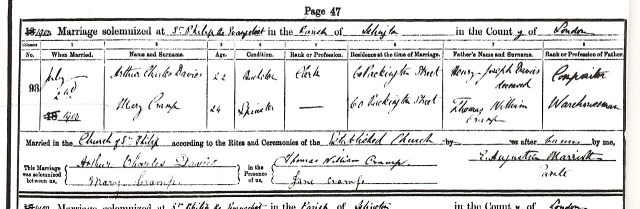 Page 47
1902 Marriage solemnized at St Philip the Evangelist in the Parish of Islington in the County of London
Columns 1 2 3 4 5 6 7 8
No. When Married. Name and Surname. Age. Condition. Rank or Profession. Residence at the time of Marriage. Father's Name and Surname. Rank or Profession of Father.
93 July 2nd 1902 Arthur Charles Davies 22 Bachelor Clerk 60 Packington Street Henry Joseph Davies deceased Compositor
Mary Cramp 24 Spinster — 60 Packington Street Thomas William Cramp Warehouseman
Married in the Church of St Philip according to the Rites and Ceremonies of the Established Church by or after Banns by me,
This Marriage was solemnized between us, Arthur Charles Davies in the Presence of us, Thomas William Cramp E. Augustin Marriott
Mary Cramp Jane Cramp
1902 Marriage solemnized at St Philip the Evangelist in the Parish of Islington in the County of London